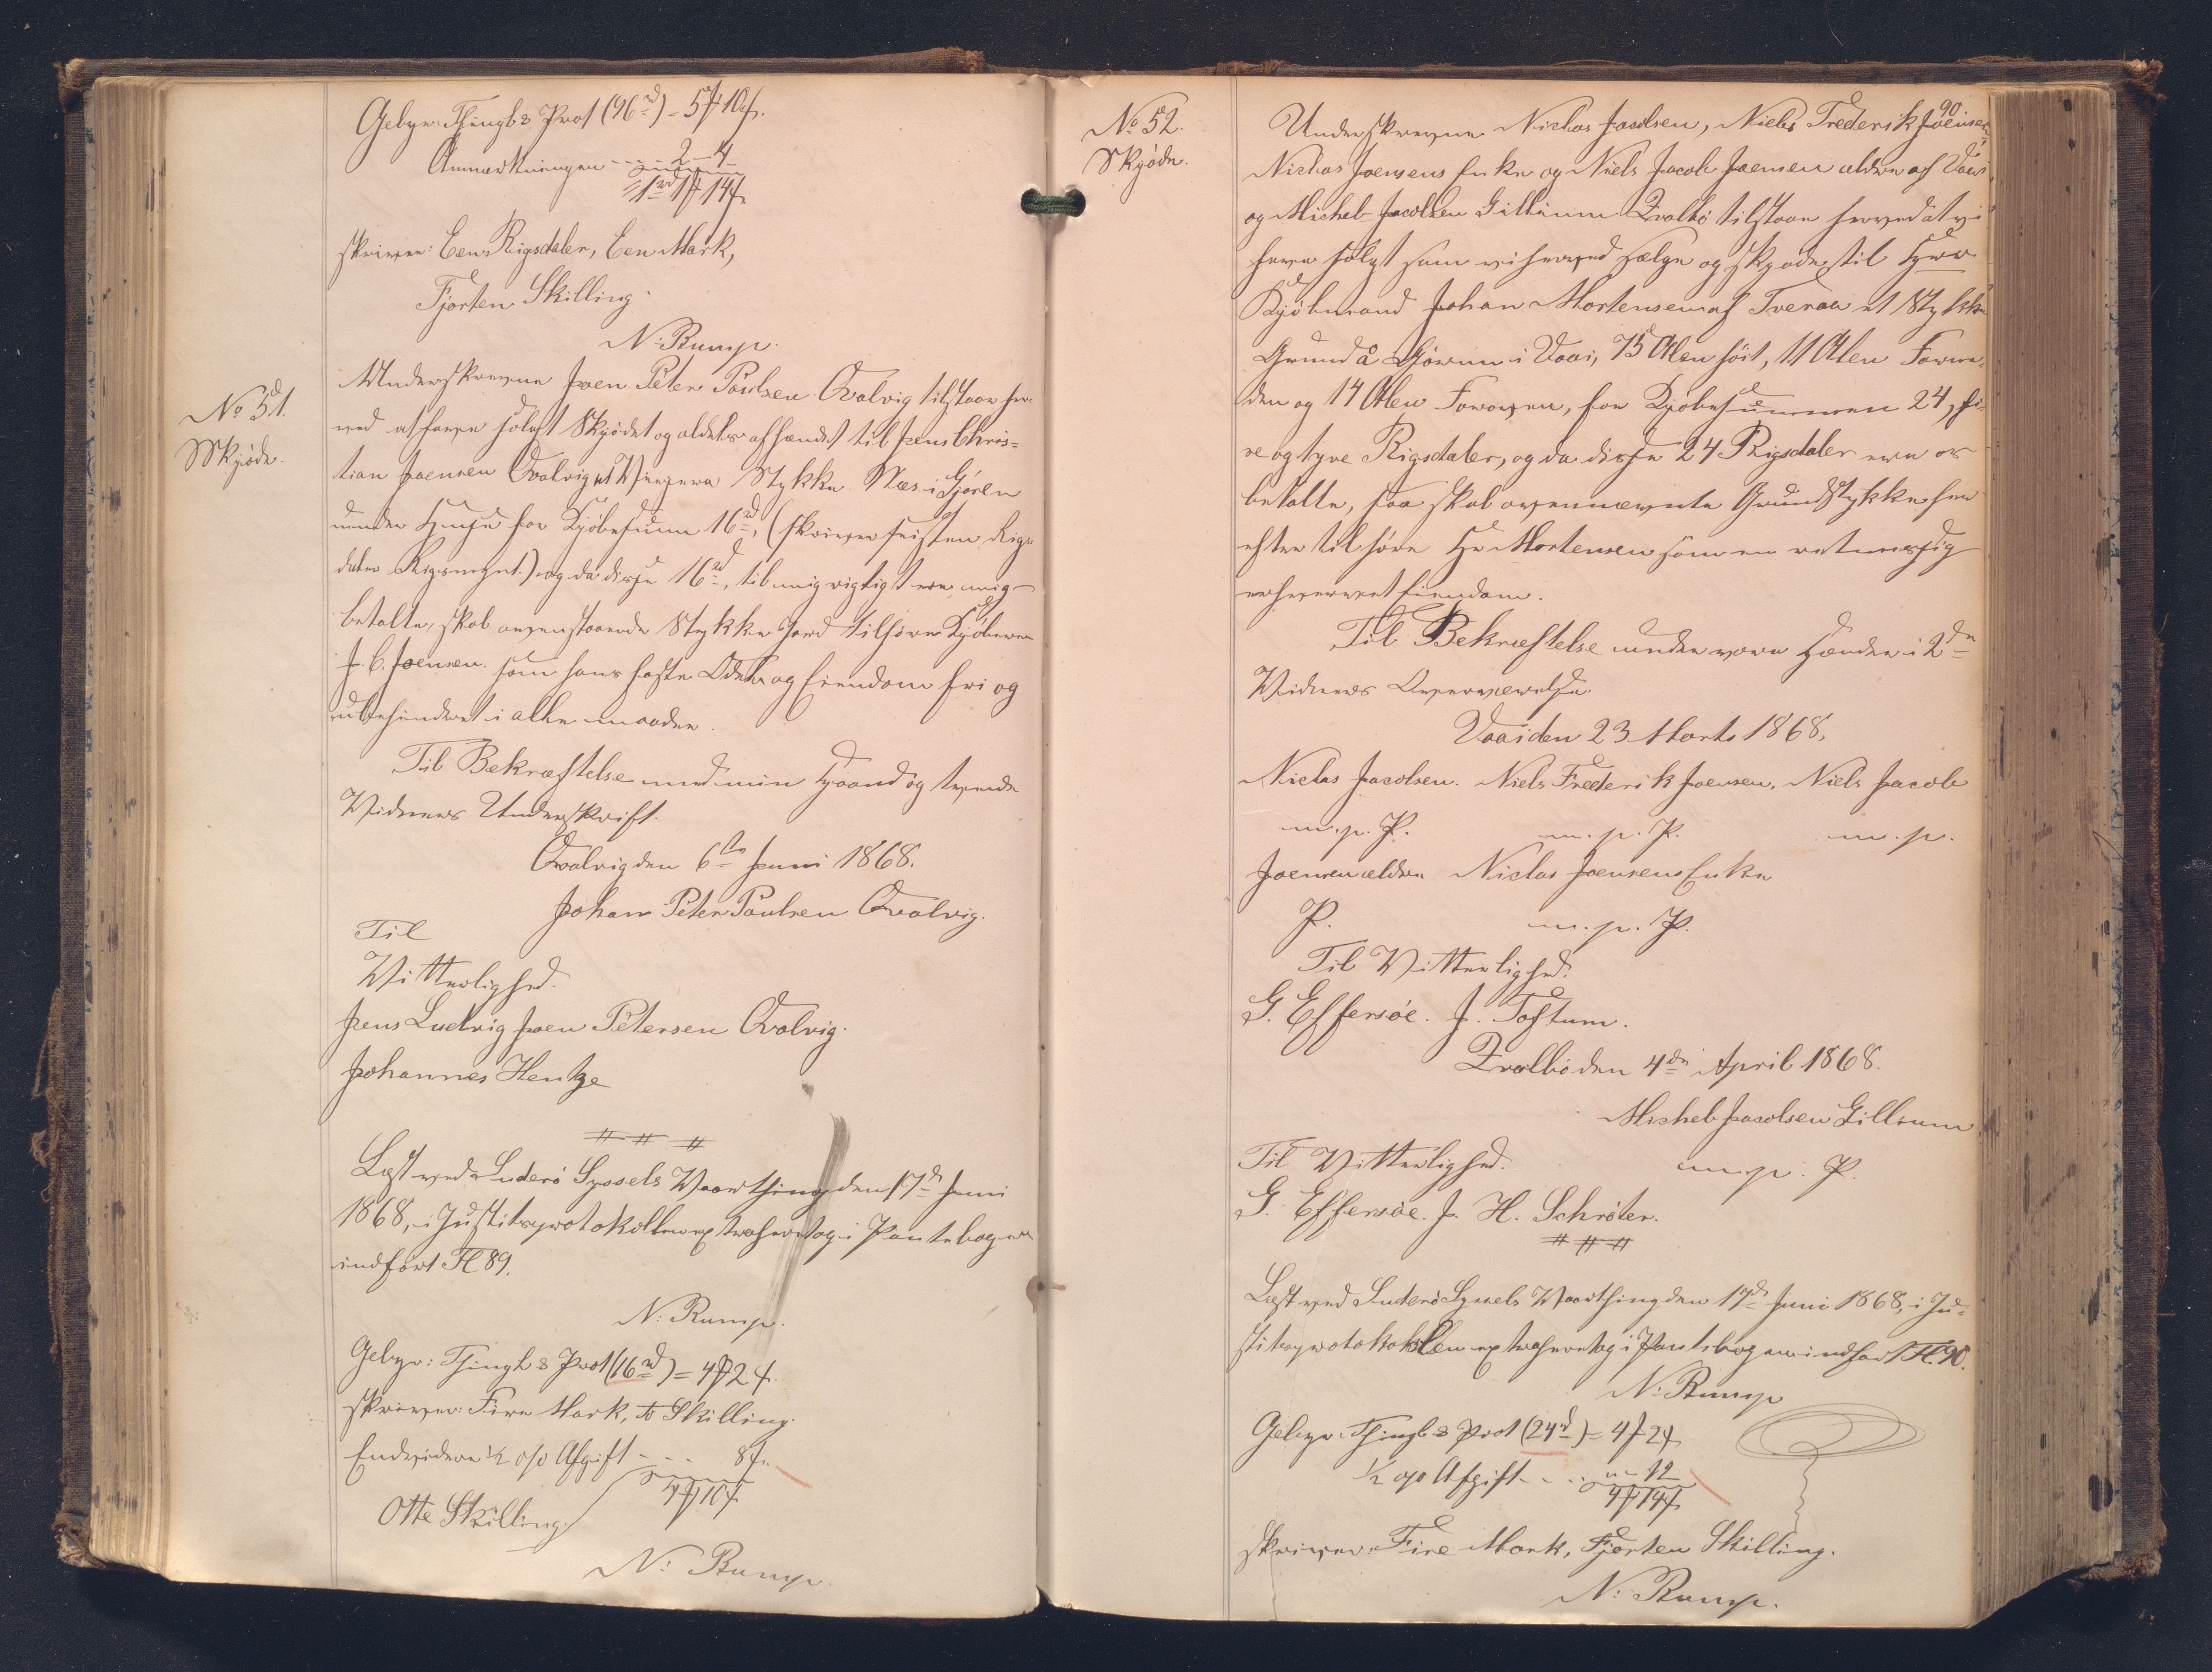 Gebyr: Thingl & Prot (96rd) - 5 # 10 ß.
Anmærkningen - - - - 2 - 4
= 1rd 1 # 14 ß
skriver: Een Rigsdaler, Een Mark,
Fjorten Skilling.
N: Rump.
No 51.
Skjøde.
Underskrevne Joen Peter Poulsen Qvalvig tilstaar her-
ved at have solgt Skjødet og aldeles afhændet til Jens Chris=
tian Joensen Qvalvig et Stykke Næs i Gjøren
under for Kjøbesum 16rd, (skriver seisten Rigs
daler Rigsmynt.) og da disse 16rd, til mig rigtigt ere mig
betalte, skal ovenstaaende Stykke Jord tilhøre Kjøberen
J. C. Joensen som hans faste Odel og Eiendom fri og
ubehindret i alle maader.
Til Bekræftelse med min Haand og tvende
Vidners Underskrift.
Qvalvig den 6te Juni 1868.
Johan Peter Poulsen Qvalvig.
Til
Vitterlighed.
Jens Ludvig Joen Petersen Qvalvig.
Johannes Hentze
Læst ved Suderø Syssels Vaarthing den 17de Juni
1868, i Justitsprotokollen extraheret og i Pantebogen
indført Fl 89.
N: Rump.
Gebyr: Thingl & Prot (16rd) = 4 # 2 ß.
skriver: Fire Mark, to Skilling.
Endvidere 1/2 o/o Afgift - - - 8 ß.
4 # 10 ß
Otte Skilling.
N: Rump.
90
No 52.
Skjøde.
Underskrevne Niclas Jacobsen, Niels Frederik Joensen
Niclas Joensens Enke og Niels Jacob Joensen ældre af Vaai
og Michel Jacobsen Gillinum Qvalbø tilstaae herved at vi
have solgt som vi herved sælge og skjøde til Herr
Kjøbmand Johan Mortensen af Tveraa et Stykke
Grund i Vaai, 75 Alen høit, 11 Alen Forne-
den og 14 Alen Foroven, for Kjøbesummen 24, fi-
re og tyve Rigsdaler, og da disse 24 Rigsdaler ere os
betalte, saa skal ovennævnte Grundstykke her
efter tilhøre Hr Mortensen som en retmæssig
erhvervet Eiendom.
Til Bekræftelse under vore Hænder i 2de
Vidners Overværelse.
Vaai den 23 Marts 1868.
Niclas Jacobsen. Niels Frederik Joensen. Niels Jacob
m. p. P. m. p. P. m. p.
Joensen ældre Niclas Joensens Enke
P. m. p. P.
Til Vitterlighed.
G. Effersøe. J. Toftum.
Qvalbø den 4de April 1868.
Michel Jacobsen Gillinum
Til Vitterlighed. m. p. P.
G. Effersøe. J. H. Schrøter.
Læst ved Suderø Syssels Vaarthing den 17de Juni 1868, i Ju-
stitsprotokollen extraheret og i Pantebogen indført Fl. 90.
N: Rump
Gebyr: Thingl & Prot (24rd) = 4 # 2 ß
1/2 o/o Afgift - - - " - 12
4 # 14 ß
skriver: Fire Mark, Fjorten Skilling.
N: Rump.